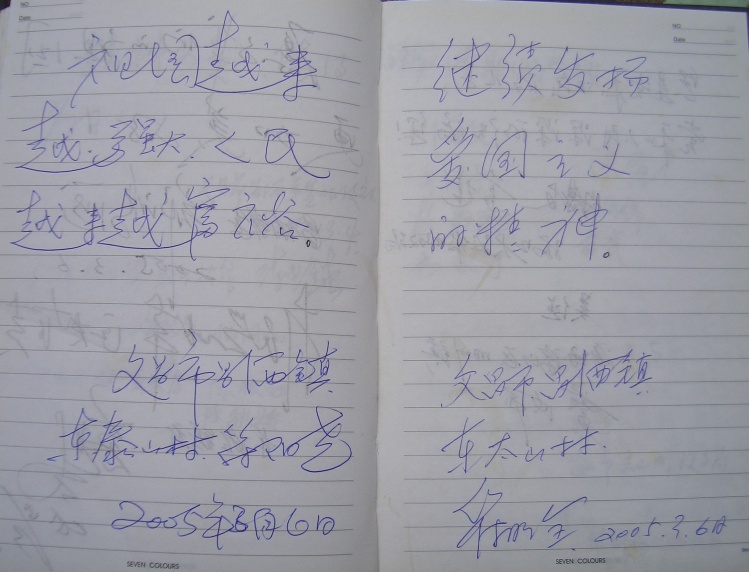 NO
Date
祖国越来
越强大.人民
越来越富裕。
文昌市昌洒镇
东泰山村
2005年3月6日
SEVEN COLOURS
NO
Date
继续发扬
爱国主义
的精神。
文昌市昌洒镇
东太山村.
2005.3.6日
SEVEN COLOURS